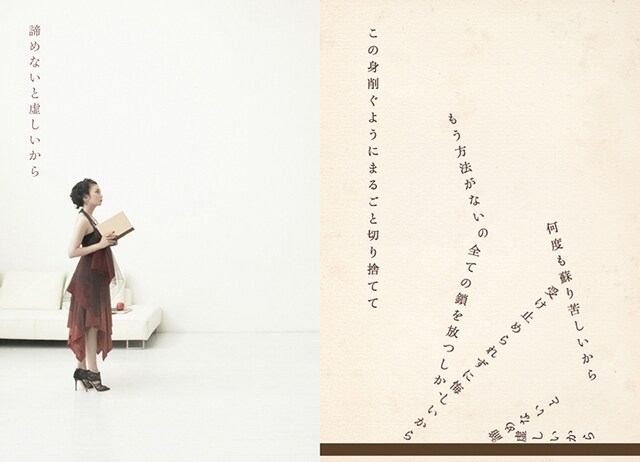 諦めないと虚しいから
この身削ぐようにまるごと切り捨てて
もう方法がないの 全ての鎖を放つしか
受け止められずに悔しいから
何度も蘇り苦しいから
諦めないと
虚しいから